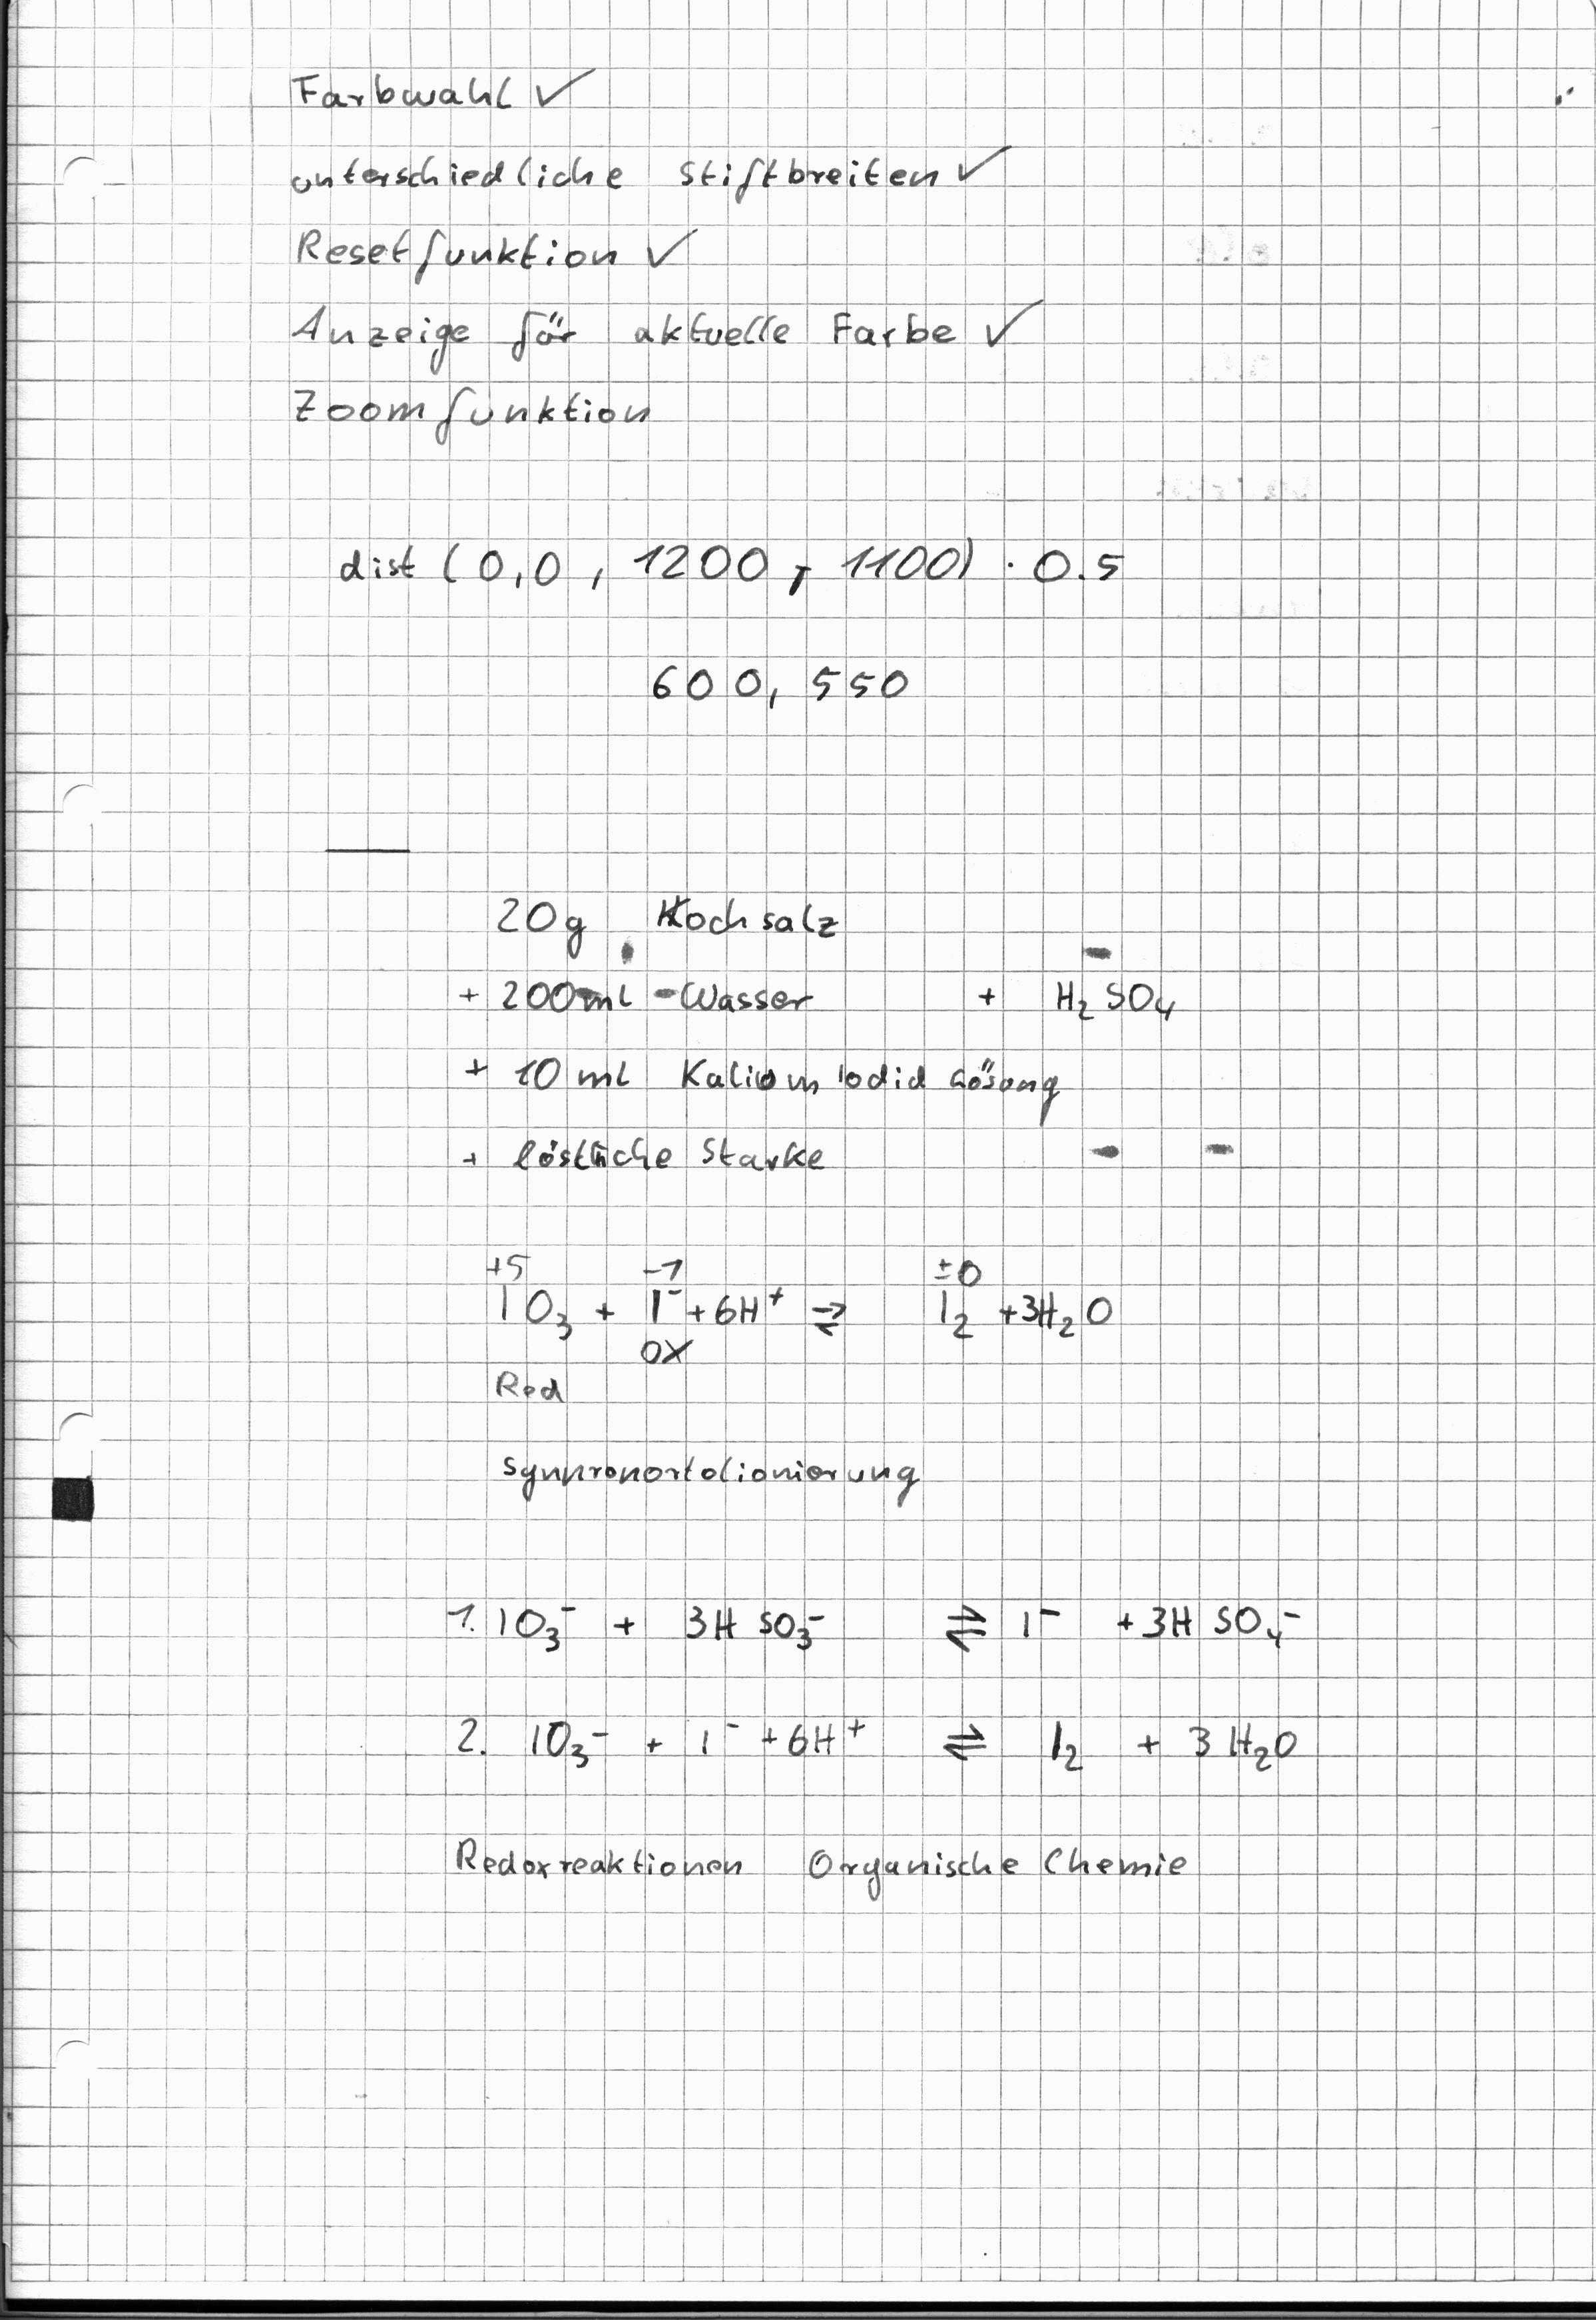 Farbwahl ✓
unterschiedliche Stiftbreiten ✓
Resetfunktion ✓
Anzeige für aktuelle Farbe ✓
Zoomfunktion
dist (0,0 , 1200 , 1100) · 0.5
600, 550
20g Kochsalz
+ 200ml Wasser + H₂SO₄
+ 10 ml Kalium Iodid Lösung
+ lösliche Stärke
+5 -1 ±0
IO₃ + I⁻ + 6H⁺ ⇌ I₂ + 3H₂O
OX
Red
1. IO₃⁻ + 3H SO₃⁻ ⇌ I⁻ + 3H SO₄⁻
2. IO₃⁻ + I⁻ + 6H⁺ ⇌ I₂ + 3 H₂O
Redoxreaktionen Organische Chemie